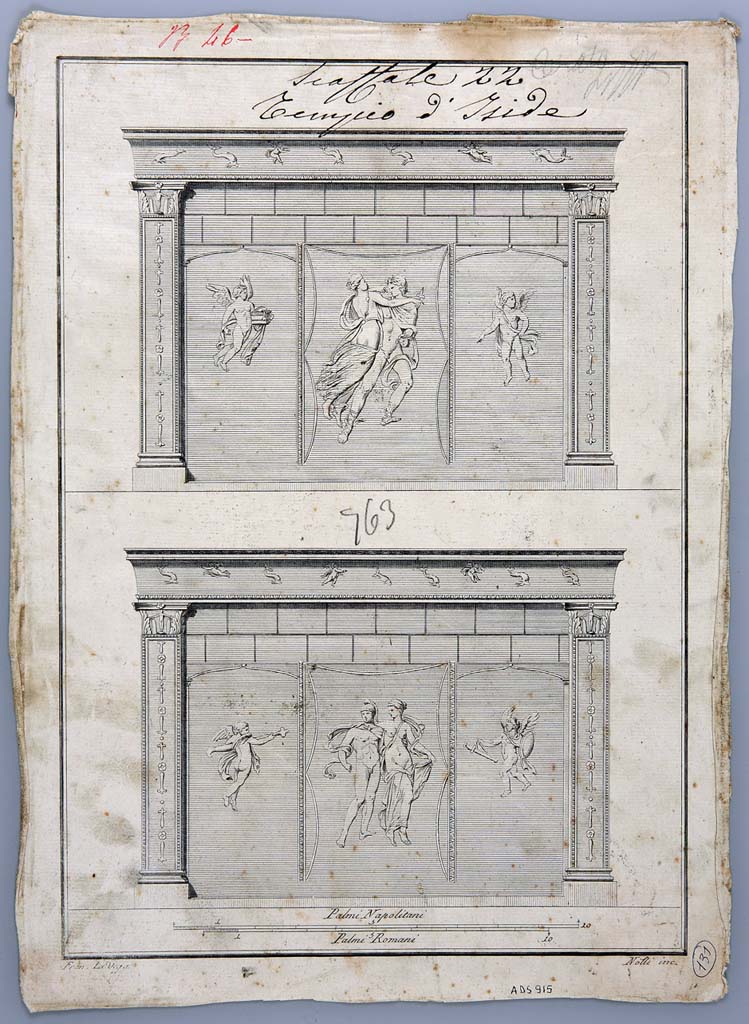 Scaffale 22
Tempio d' Iside
763
Palmi Napolitani
1 5 10
Palmi Romani
1 5 10
Fran. La Vega
Nolli inc.
131
ADS 915